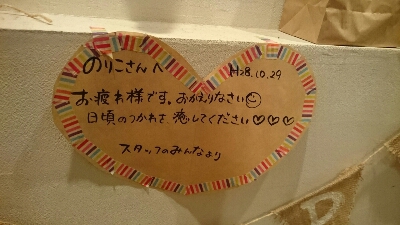 のりこさんへ
H28.10.29
お疲れ様です。おかえりなさい☺
日頃のつかれを癒してください♡♡♡
スタッフのみんなより